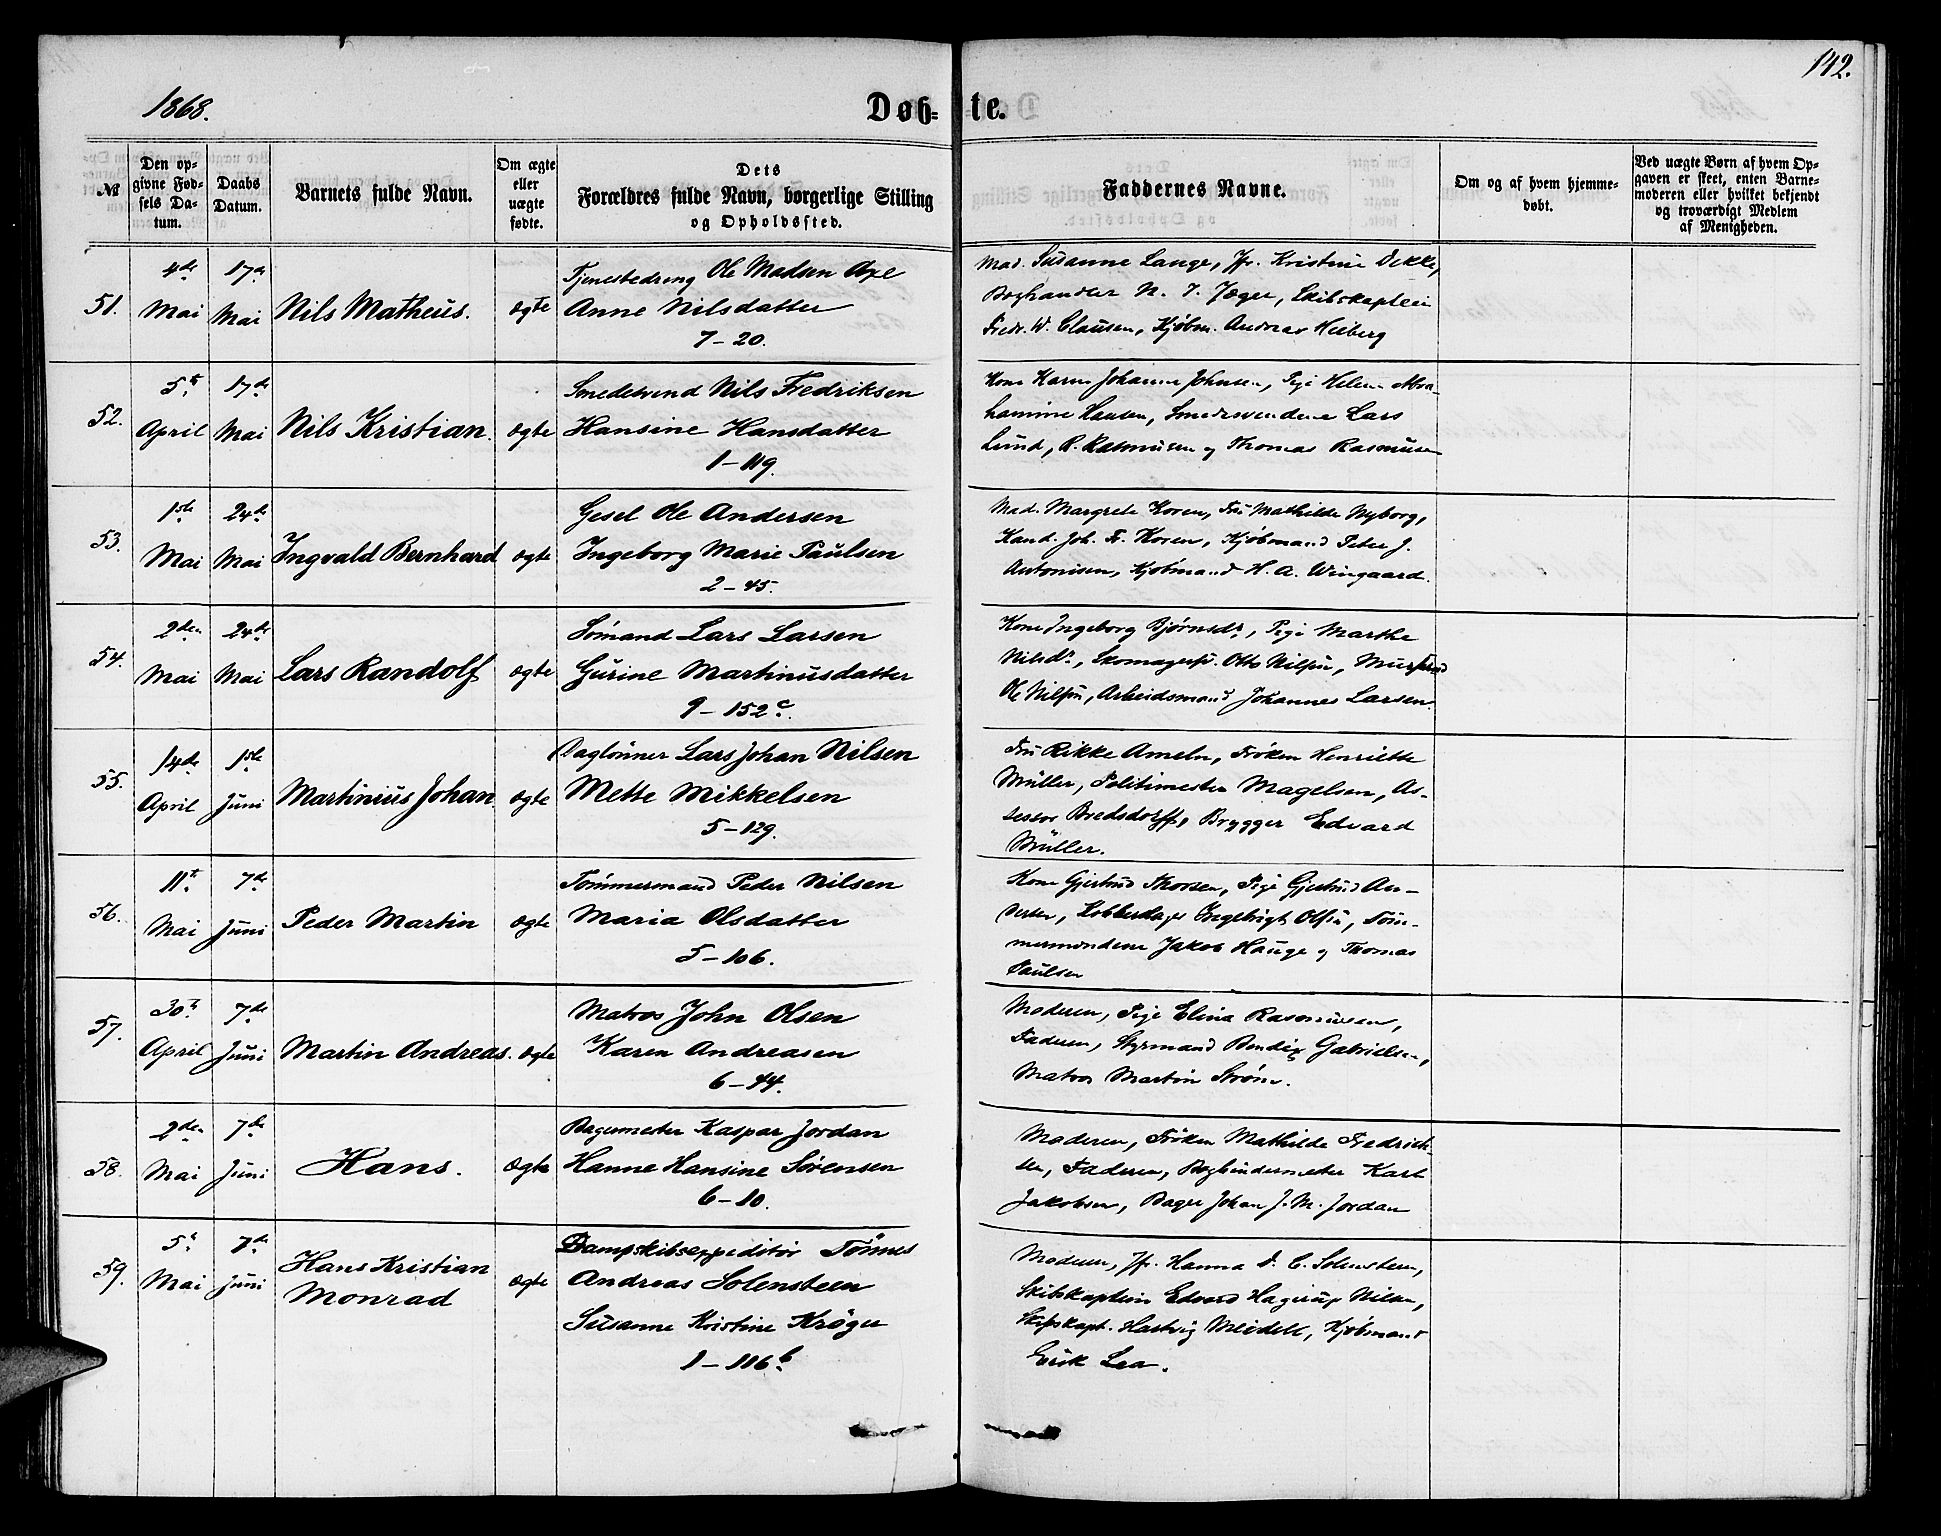 142.
1868.
Døb-te.
№
Den op-
givne Fød-
sels Da-
tum.
Daabs
Datum.
Barnets fulde Navn.
Om ægte
eller
uægte
fødte.
Dets
Forældres fulde Navn, borgerlige Stilling
og Opholdssted.
Faddernes Navne.
Om og af hvem hjemme-
døbt.
Ved uægte Børn af hvem Op-
gaven er skeet, enten Barne-
moderen eller hvilket bekjendt
og troværdigt Medlem
af Menigheden.
51.
4de
Mai
17de
Mai
Nils Matheus.
ægte
Tjenestedreng Ole Madsen Axe
Anne Nilsdatter
7-20.
Mad. Susanne Lange, Jfr. Kristine Dekke,
Boghandler N. J. Jæger, Skibskaptein
Fredr. W. Clausen, Kjøbm. Andreas Heiberg
52.
5te
April
17de
Mai
Nils Kristian.
ægte
Smedesvend Nils Fredriksen
Hansine Hansdatter
1-119.
Kone Karen Johanne Johnsen, Pige Helene Abra-
hamine Hansen, Smedesvendene Lars
Lund, R. Rasmusen og Thomas Rasmusen
53.
1ste
Mai
24de
Mai
Ingvald Bernhard
ægte
Gesel Ole Andersen
Ingeborg Marie Paulsen
2-45.
Mad. Margrete Koren, Fru Mathilde Nyborg,
Kand. Joh. Fr. Koren, Kjøbmand Peter J.
Antonisen, Kjøbmand H. A. Wingaard.
54.
2den
Mai
24de
Mai
Lars Randolf
ægte
Sømand Lars Larsen
Gurine Martinusdatter
9-152c.
Kone Ingeborg Bjørnsdr., Pige Marthe
Nilsdr., Skomagersv. Otto Nilsen,
Ole Nilsen, Arbeidsmand Johannes Larsen.
55.
14de
April
1ste
Juni
Martinius Johan
ægte
Daglønner Lars Johan Nilsen
Mette Mikkelsen
5-129.
Fru Rikke Ameln, Frøken Henriette
Müller, Politimester Magelsen, As-
sessor Bredsdorff, Brygger Edvard
Müller.
56.
11te
Mai
7de
Juni
Peder Martin
ægte
Tømmermand Peder Nilsen
Maria Olsdatter
5-106.
Kone Gjertrud Thorsen, Pige Gjertrud An-
dersen, Kobberslager Ingebrigt Olsen, Tøm-
mermændene Jakob Hauge og Thomas
Paulsen
57.
30te
April
7de
Juni
Martin Andreas.
ægte
Matros John Olsen
Karen Andreasen
6-44.
Moderen, Pige Elina Rasmussen,
Faderen, Styrmand Bendix Gabrielsen,
Matros Martin Strøm.
58.
2den
Mai
7de
Juni
Hans.
ægte
Bagermester Kaspar Jordan
Hanne Hansine Sørensen
6-10.
Moderen, Frøken Mathilde Fredrich-
sen, Faderen, Bogbindermester Karl
Jakobsen, Bager Johan J. M. Jordan
59.
5te
Mai
7de
Juni
Hans Kristian
Monrad
ægte
Dampskibsexpeditør Tønnes
Andreas Solensteen
Susanne Kristine Krøger
1-116b.
Moderen, Jfr. Hanna D. C. Solensteen,
Skibskaptein Edvard Hagerup Nilsen,
Skibskapt. Hartvig Meidell, Kjøbmand
Erik Lea.